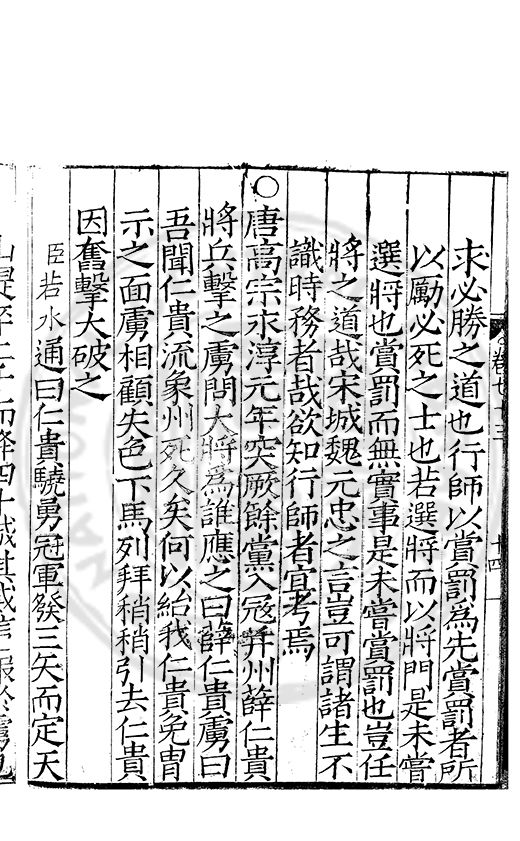 卷七十三　十四
求必勝之道也行師以賞罰爲先賞罰者所
以勵必死之士也若選將而以將門是未嘗
選將也賞罰而無實事是未嘗賞罰也豈任
將之道哉宋城魏元忠之言豈可謂諸生不
識時務者哉欲知行師者宜考焉
○唐高宗永淳元年突厥餘黨入寇并州薛仁貴
將兵擊之虜問大將爲誰應之曰薛仁貴虜曰
吾聞仁貴流象州死久矣何以紿我仁貴免冑
示之面虜相顧失色下馬列拜稍稍引去仁貴
因奮擊大破之
臣若水通曰仁貴驍勇冠軍發三矢而定天